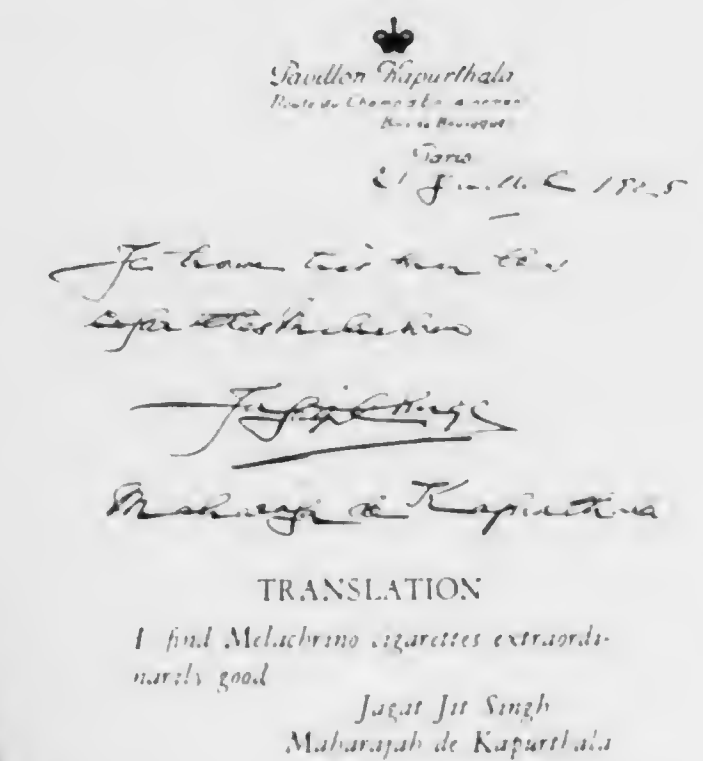 Pavillon Kapurthala
Route du Champ d'Entrainement
Bois de Boulogne
Paris
21 Juillet 1925
Je trouve très bon les
cigarettes Melachrino
Jagatjit Singh
Maharaja de Kapurthala
TRANSLATION
I find Melachrino cigarettes extraordi-
narily good
Jagat Jit Singh
Maharajah de Kapurthala